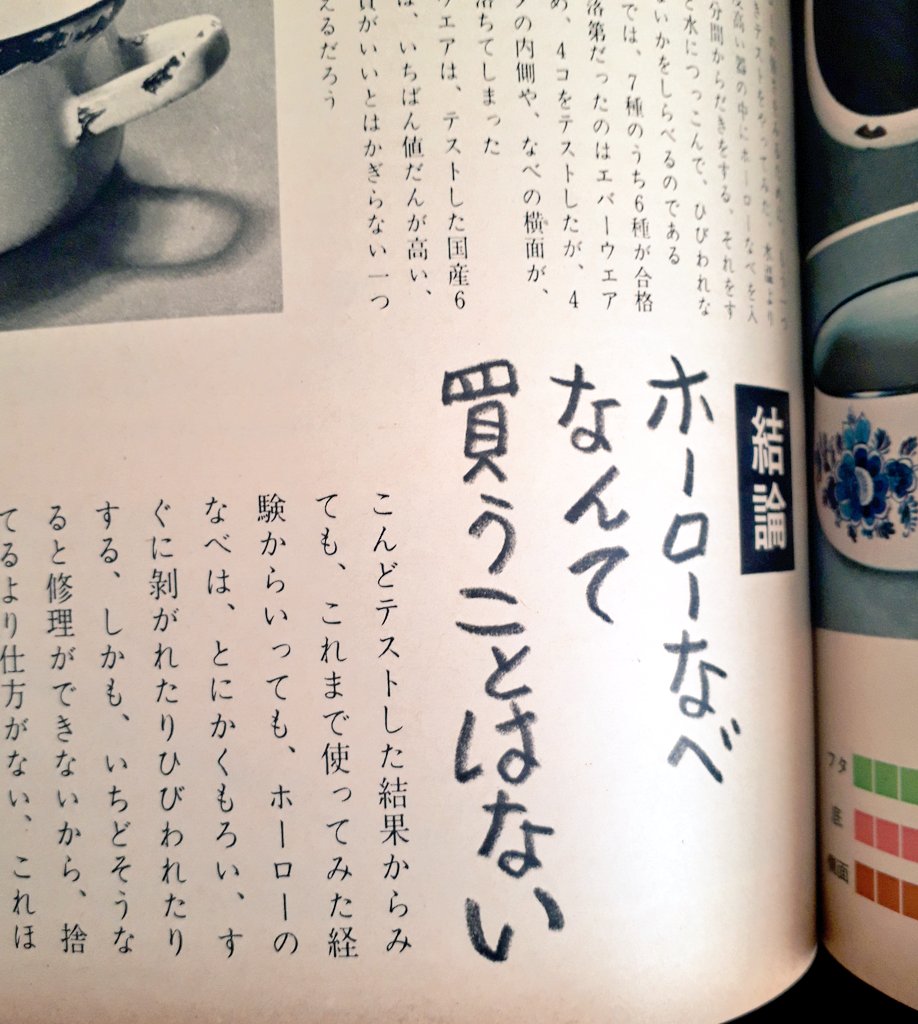 分間からだきをする、それをす
と水につっこんで、ひびわれな
ないかをしらべるのである
では、7種のうち6種が合格
落第だったのはエバーウェア
め、4コをテストしたが、4
の内側や、なべの横面が、
落ちてしまった
ウェアは、テストした国産6
は、いちばん値だんが高い、
質がいいとはかぎらない一つ
えるだろう
結論
ホーローなべ
なんて
買うことはない
こんどテストした結果からみ
ても、これまで使ってみた経
験からいっても、ホーローの
なべは、とにかくもろい、す
ぐに剝がれたりひびわれたり
する、しかも、いちどそうな
ると修理ができないから、捨
てるより仕方がない、これほ
フタ
底
側面